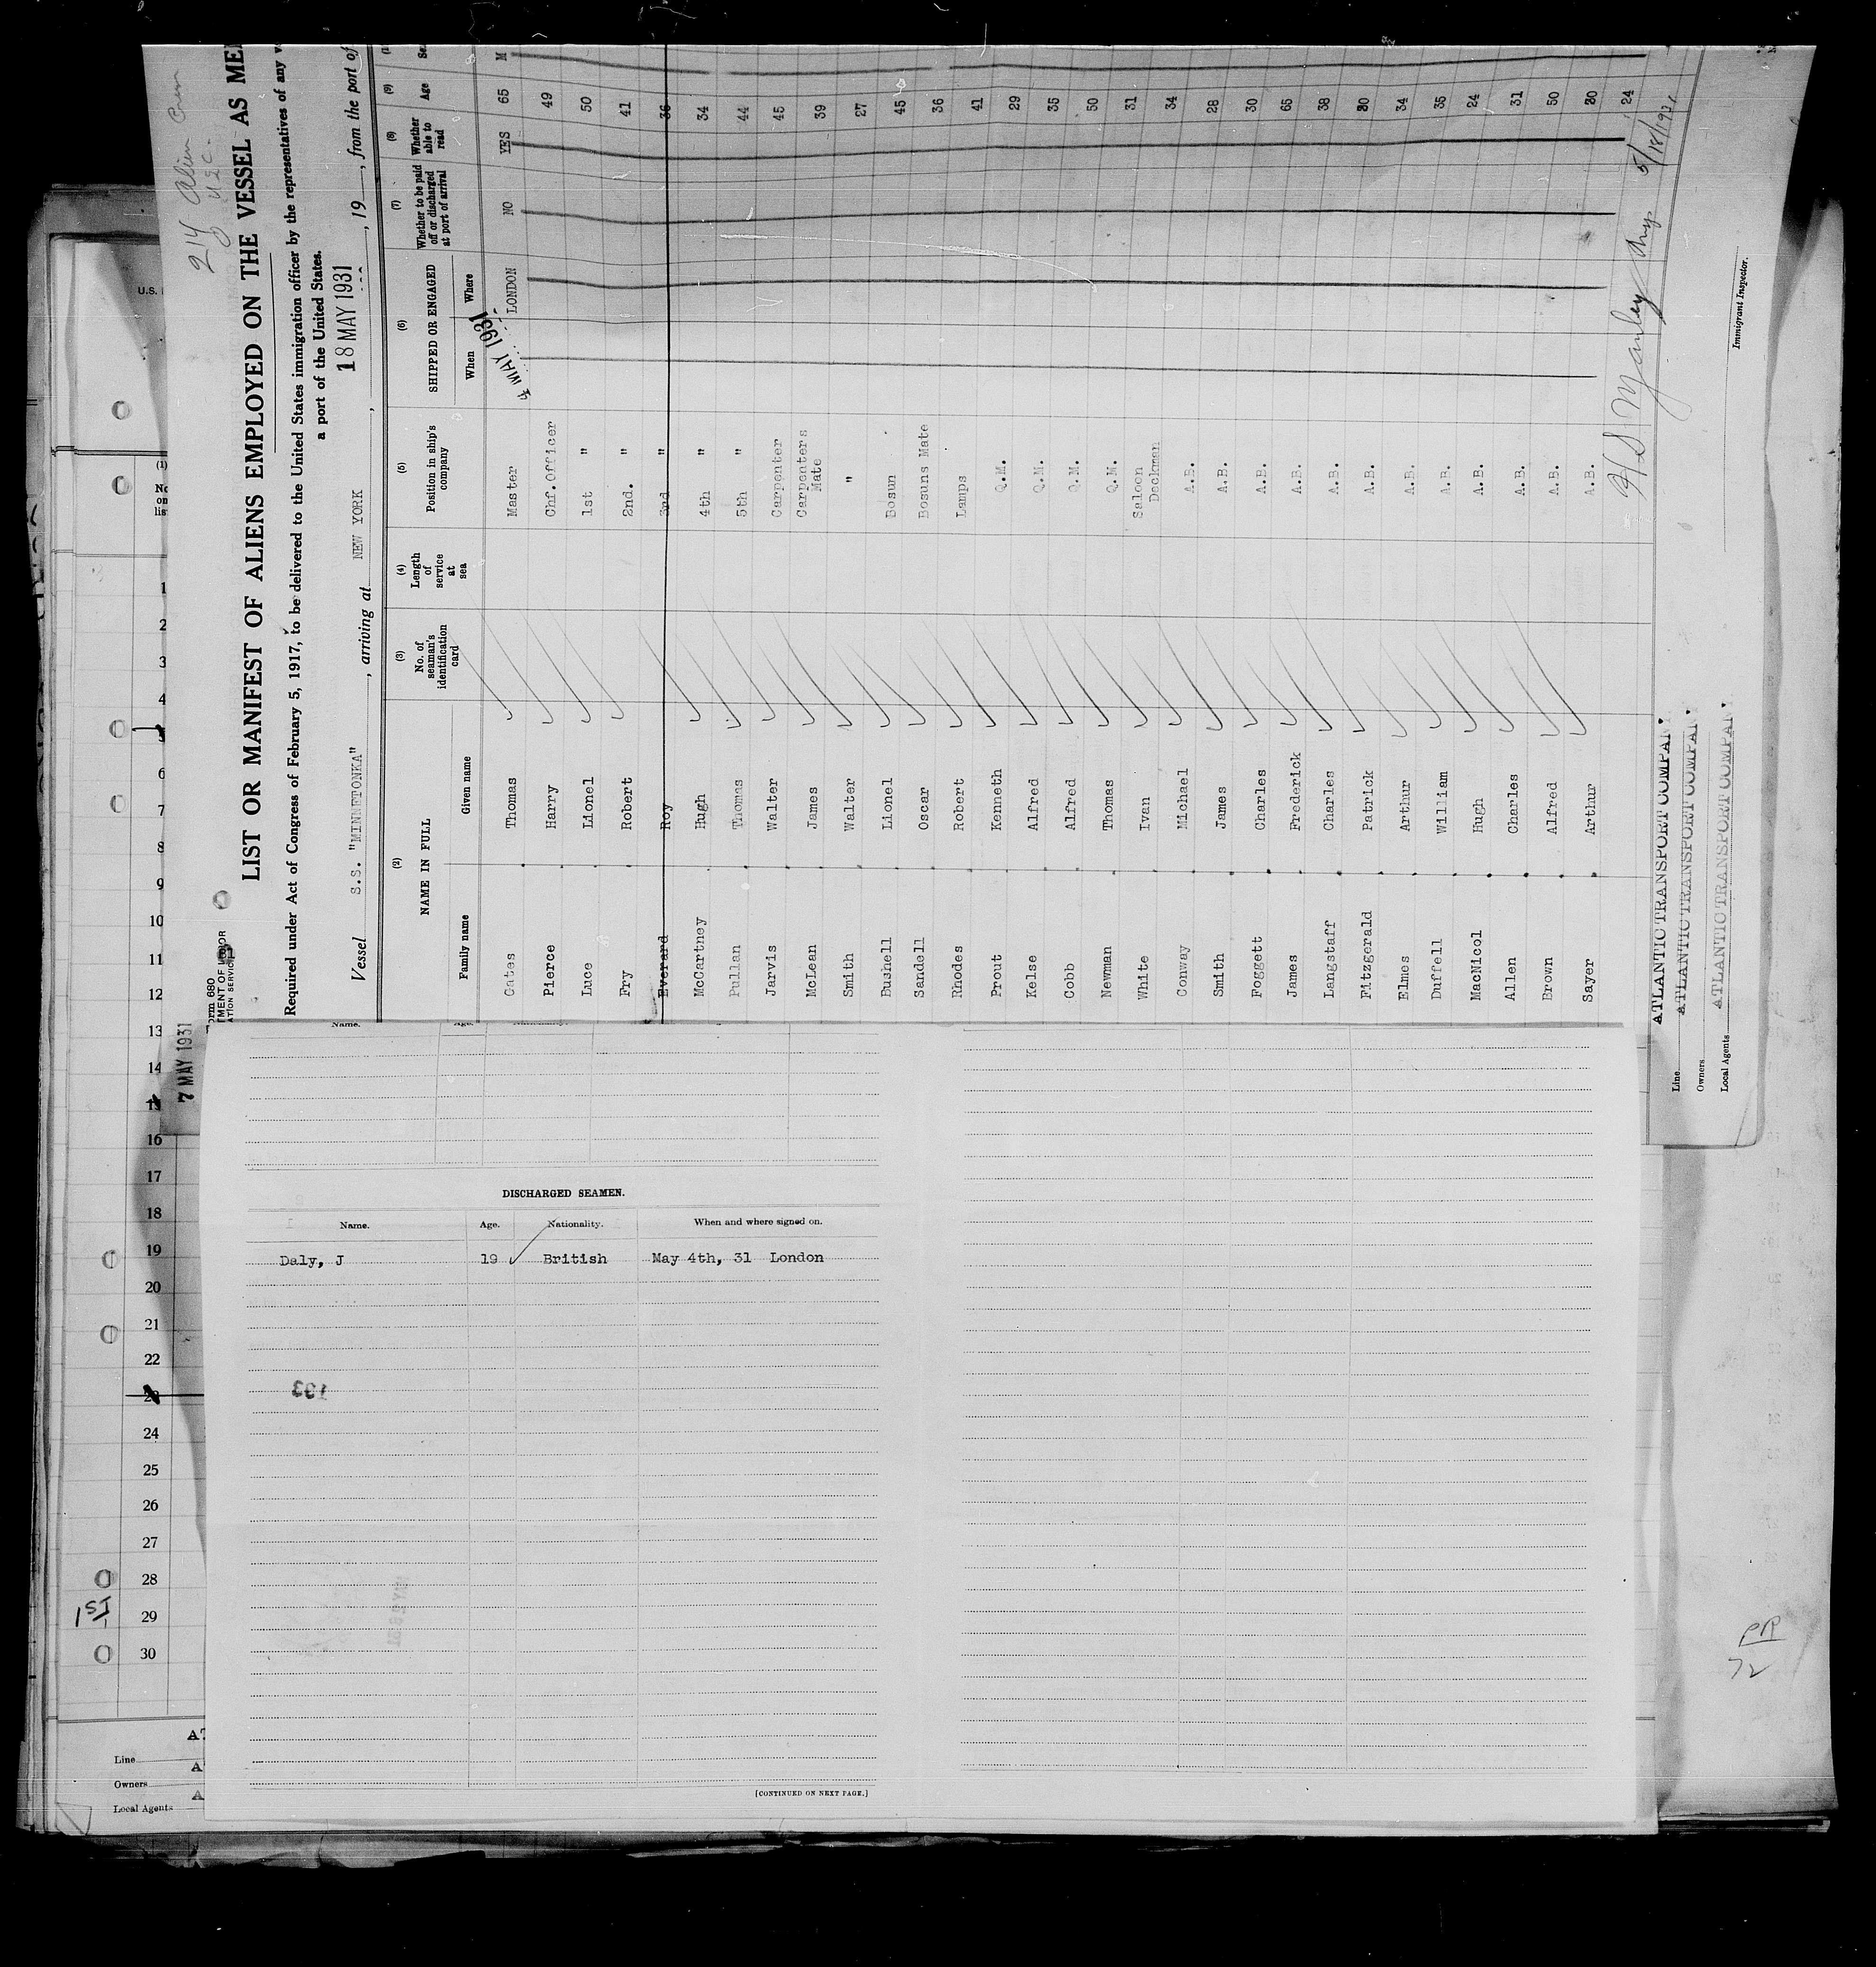 214 Alien Crew
U.S.C.
Form 680
LIST OR MANIFEST OF ALIENS EMPLOYED ON THE VESSEL AS ME
Required under Act of Congress of February 5, 1917, to be delivered to the United States immigration officer by the representatives of any
a port of the United States.
18 MAY 1931
Vessel S.S. "MINNETONKA", arriving at NEW YORK, , 19 , from the port of
(2) (3) (4) (5) (6) (7) (8) (9)
NAME IN FULL No. of seaman's identification card Length of service at sea Position in ship's company SHIPPED OR ENGAGED Whether to be paid off or discharged at port of arrival Whether able to read Age
Family name Given name When Where
Cates Thomas Master 4 MAY 1931 LONDON NO YES 65 M
Pierce Harry Chf. Officer 49
Luce Lionel 1st " 50
Fry Robert 2nd. " 41
Everard Roy 3rd " 36
McCartney Hugh 4th " 34
Pullan Thomas 5th " 44
Jarvis Walter Carpenter 45
McLean James Carpenters Mate 39
Smith Walter " 27
Bushell Lionel Bosun 45
Sandell Oscar Bosuns Mate 36
Rhodes Robert Lamps 41
Prout Kenneth Q.M. 29
Kelse Alfred Q.M. 35
Cobb Alfred Q.M. 50
Newman Thomas Q.M. 31
White Ivan Saloon Deckman 34
Conway Michael A.B. 28
Smith James A.B. 30
Foggett Charles A.B. 65
James Frederick A.B. 38
Langstaff Charles A.B. 30
Fitzgerald Patrick A.B. 34
Elmes Arthur A.B. 35
Duffell William A.B. 24
MacNicol Hugh A.B. 31
Allen Charles A.B. 50
Brown Alfred A.B. 30
Sayer Arthur A.B. 24
5/18/1931
Line ATLANTIC TRANSPORT COMPANY
Owners ATLANTIC TRANSPORT COMPANY
Local Agents ATLANTIC TRANSPORT COMPANY
Immigrant Inspector.
7 MAY 1931
U.S.
(1)
No
on
lis
1
2
3
4
5
6
7
8
9
10
11
12
13
14
15
16
17
18
19
20
21
22
23
24
25
26
27
28
29
30
1ST
Line
Owners
Local Agents
Name. Age.
DISCHARGED SEAMEN.
Name. Age. Nationality. When and where signed on.
Daly, J 19 British May 4th, 31 London
133
[CONTINUED ON NEXT PAGE.]
PR
72